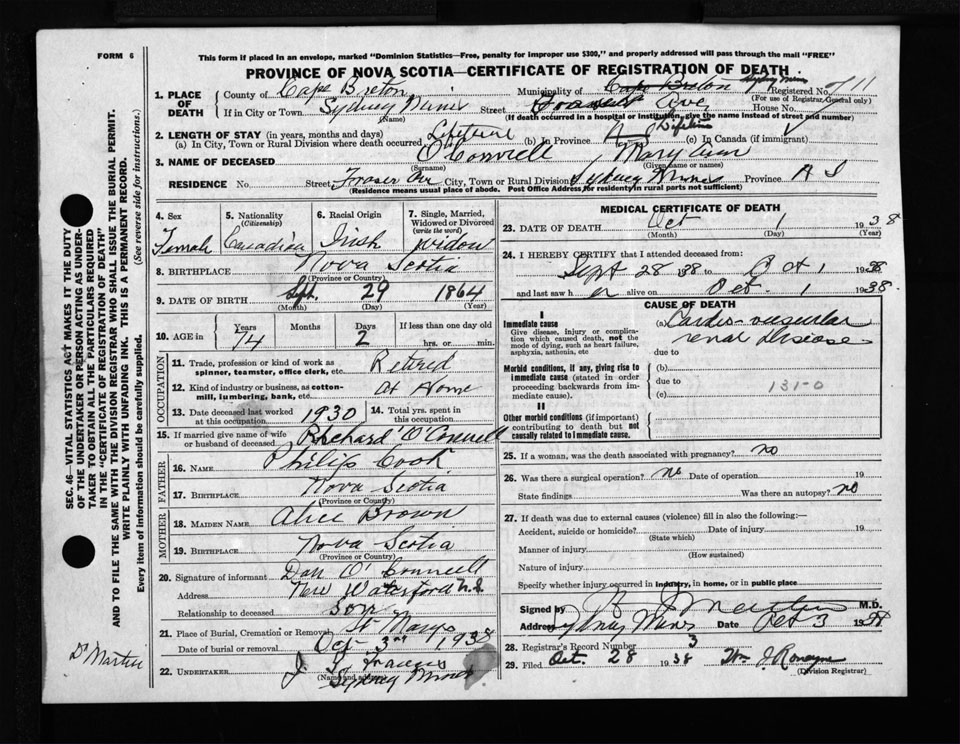 FORM 6
This form if placed in an envelope, marked "Dominion Statistics—Free, penalty for improper use $300," and properly addressed will pass through the mail "FREE"
PROVINCE OF NOVA SCOTIA—CERTIFICATE OF REGISTRATION OF DEATH
1. PLACE OF DEATH
County of Cape Breton Municipality of Cape Breton Sydney Mines Registered No. 711
(For use of Registrar General only)
If in City or Town Sydney Mines Street Fraser Ave House No.
(Name) (If death occurred in a hospital or institution, give the name instead of street and number)
2. LENGTH OF STAY (in years, months and days)
(a) In City, Town or Rural Division where death occurred Lifetime (b) In Province Lifetime (c) In Canada (if immigrant)
3. NAME OF DECEASED O'Connell Mary Ann
(Surname) (Given name or names)
RESIDENCE No. Street Fraser Ave City, Town or Rural Division Sydney Mines Province N S
(Residence means usual place of abode. Post Office Address for residenty in rural parts not sufficient)
4. Sex Female
5. Nationality (Citizenship) Canadian
6. Racial Origin Irish
7. Single, Married, Widowed or Divorced (write the word) Widow
8. BIRTHPLACE Nova Scotia
(Province or Country)
9. DATE OF BIRTH Sept. 29 1864
(Month) (Day) (Year)
10. AGE in Years 74 Months Days 2 If less than one day old hrs. or min.
OCCUPATION
11. Trade, profession or kind of work as spinner, teamster, office clerk, etc. Retired
12. Kind of industry or business, as cotton-mill, lumbering, bank, etc. At Home
13. Date deceased last worked at this occupation 1930
14. Total yrs. spent in this occupation
15. If married give name of wife or husband of deceased Richard O'Connell
FATHER
16. NAME Philip Cook
17. BIRTHPLACE Nova Scotia
(Province or Country)
MOTHER
18. MAIDEN NAME Alice Brown
19. BIRTHPLACE Nova Scotia
(Province or Country)
20. Signature of informant Dan O'Connell
Address New Waterford N.S.
Relationship to deceased Son
21. Place of Burial, Cremation or Removal St Marys
Date of burial or removal Oct 3rd 1938
22. UNDERTAKER J Francis
(Name and address) Sydney Mines
MEDICAL CERTIFICATE OF DEATH
23. DATE OF DEATH Oct 1 1938
(Month) (Day) (Year)
24. I HEREBY CERTIFY that I attended deceased from:
Sept 28 1938 to Oct 1 1938
and last saw her alive on Oct. 1 1938.
CAUSE OF DEATH
I
Immediate cause
Give disease, injury or complication which caused death, not the mode of dying, such as heart failure, asphyxia, asthenia, etc
(a) Cardio-vascular renal disease
due to
Morbid conditions, if any, giving rise to immediate cause (stated in order proceeding backwards from immediate cause).
(b)
due to
(c) 131-0
II
Other morbid conditions (if important) contributing to death but not causally related to immediate cause.
25. If a woman, was the death associated with pregnancy? no
26. Was there a surgical operation? no Date of operation 19
State findings Was there an autopsy? no
27. If death was due to external causes (violence) fill in also the following:—
Accident, suicide or homicide? Date of injury 19
(State which)
Manner of injury
(How sustained)
Nature of injury
Specify whether injury occurred in industry, in home, or in public place
Signed by Martin M.D.
Address Sydney Mines Date Oct 3 1938
28. Registrar's Record Number 3
29. Filed Oct. 28 1938 Wm J. Ronayne
(Division Registrar)
SEC. 46—VITAL STATISTICS ACT MAKES IT THE DUTY
OF THE UNDERTAKER OR PERSON ACTING AS UNDER-
TAKER TO OBTAIN ALL THE PARTICULARS REQUIRED
IN THE "CERTIFICATE OF REGISTRATION OF DEATH"
AND TO FILE THE SAME WITH THE DIVISION REGISTRAR WHO SHALL ISSUE THE BURIAL PERMIT.
WRITE PLAINLY WITH UNFADING INK. THIS IS A PERMANENT RECORD.
Every item of information should be carefully supplied. (See reverse side for instructions.)
Dr Martin